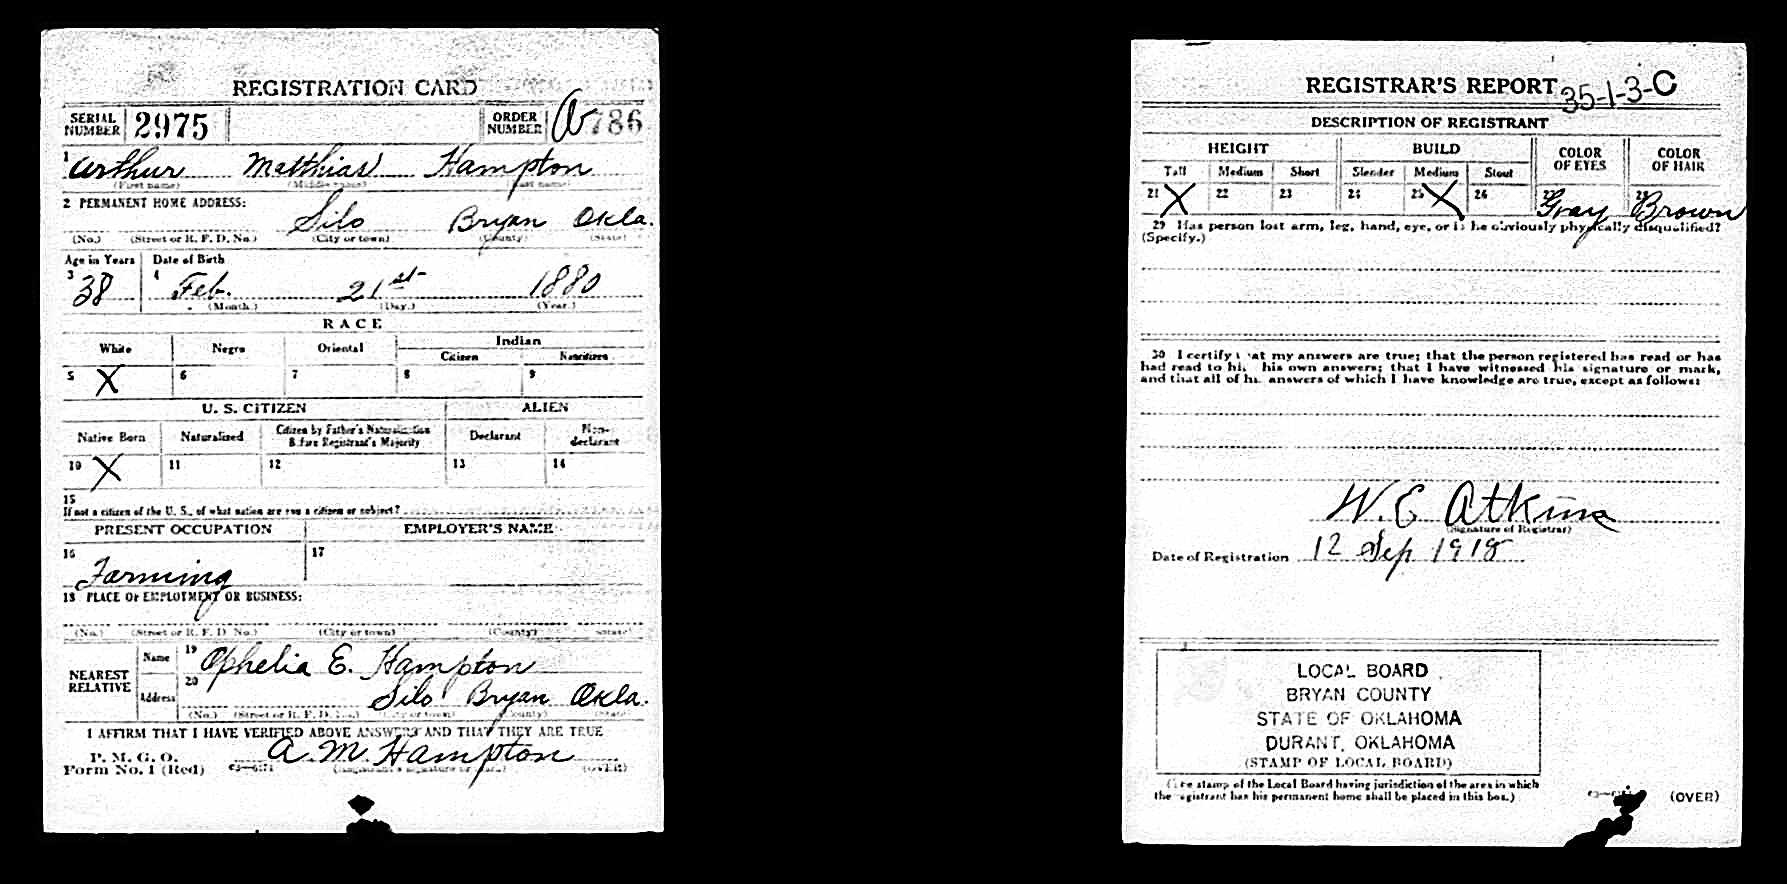 REGISTRATION CARD
SERIAL NUMBER 2975 ORDER NUMBER A786
1 Arthur Matthias Hampton
(First name) (Middle name) (Last name)
2 PERMANENT HOME ADDRESS:
Silo Bryan Okla.
(No.) (Street or R. F. D. No.) (City or town) (County) (State)
Age in Years Date of Birth
3 38 4 Feb. 21st 1880
(Month.) (Day.) (Year.)
RACE
White Negro Oriental Indian
Citizen Noncitizen
5 X 6 7 8 9
U. S. CITIZEN ALIEN
Native Born Naturalized Citizen by Father's Naturalization Before Registrant's Majority Declarant Non-declarant
10 X 11 12 13 14
15
If not a citizen of the U. S., of what nation are you a citizen or subject?
PRESENT OCCUPATION EMPLOYER'S NAME
16 Farming 17
18 PLACE OF EMPLOYMENT OR BUSINESS:
(No.) (Street or R. F. D. No.) (City or town) (County) (State)
NEAREST RELATIVE Name 19 Ophelia E. Hampton
Address 20 Silo Bryan Okla.
(No.) (Street or R. F. D. No.) (City or town) (County) (State)
I AFFIRM THAT I HAVE VERIFIED ABOVE ANSWERS AND THAT THEY ARE TRUE
P. M. G. O.
Form No. 1 (Red) A. M. Hampton
(Registrant's signature or mark) (OVER)
REGISTRAR'S REPORT 35-1-3-C
DESCRIPTION OF REGISTRANT
HEIGHT BUILD COLOR OF EYES COLOR OF HAIR
Tall Medium Short Slender Medium Stout
21 X 22 23 24 25 X 26 27 Gray 28 Brown
29 Has person lost arm, leg, hand, eye, or is he obviously physically disqualified?
(Specify.)
30 I certify that my answers are true; that the person registered has read or has
had read to him his own answers; that I have witnessed his signature or mark,
and that all of his answers of which I have knowledge are true, except as follows:
W. E. Atkins
(Signature of Registrar)
Date of Registration 12 Sep 1918
LOCAL BOARD
BRYAN COUNTY
STATE OF OKLAHOMA
DURANT, OKLAHOMA
(STAMP OF LOCAL BOARD)
(The stamp of the Local Board having jurisdiction of the area in which
the registrant has his permanent home shall be placed in this box.)
(OVER)